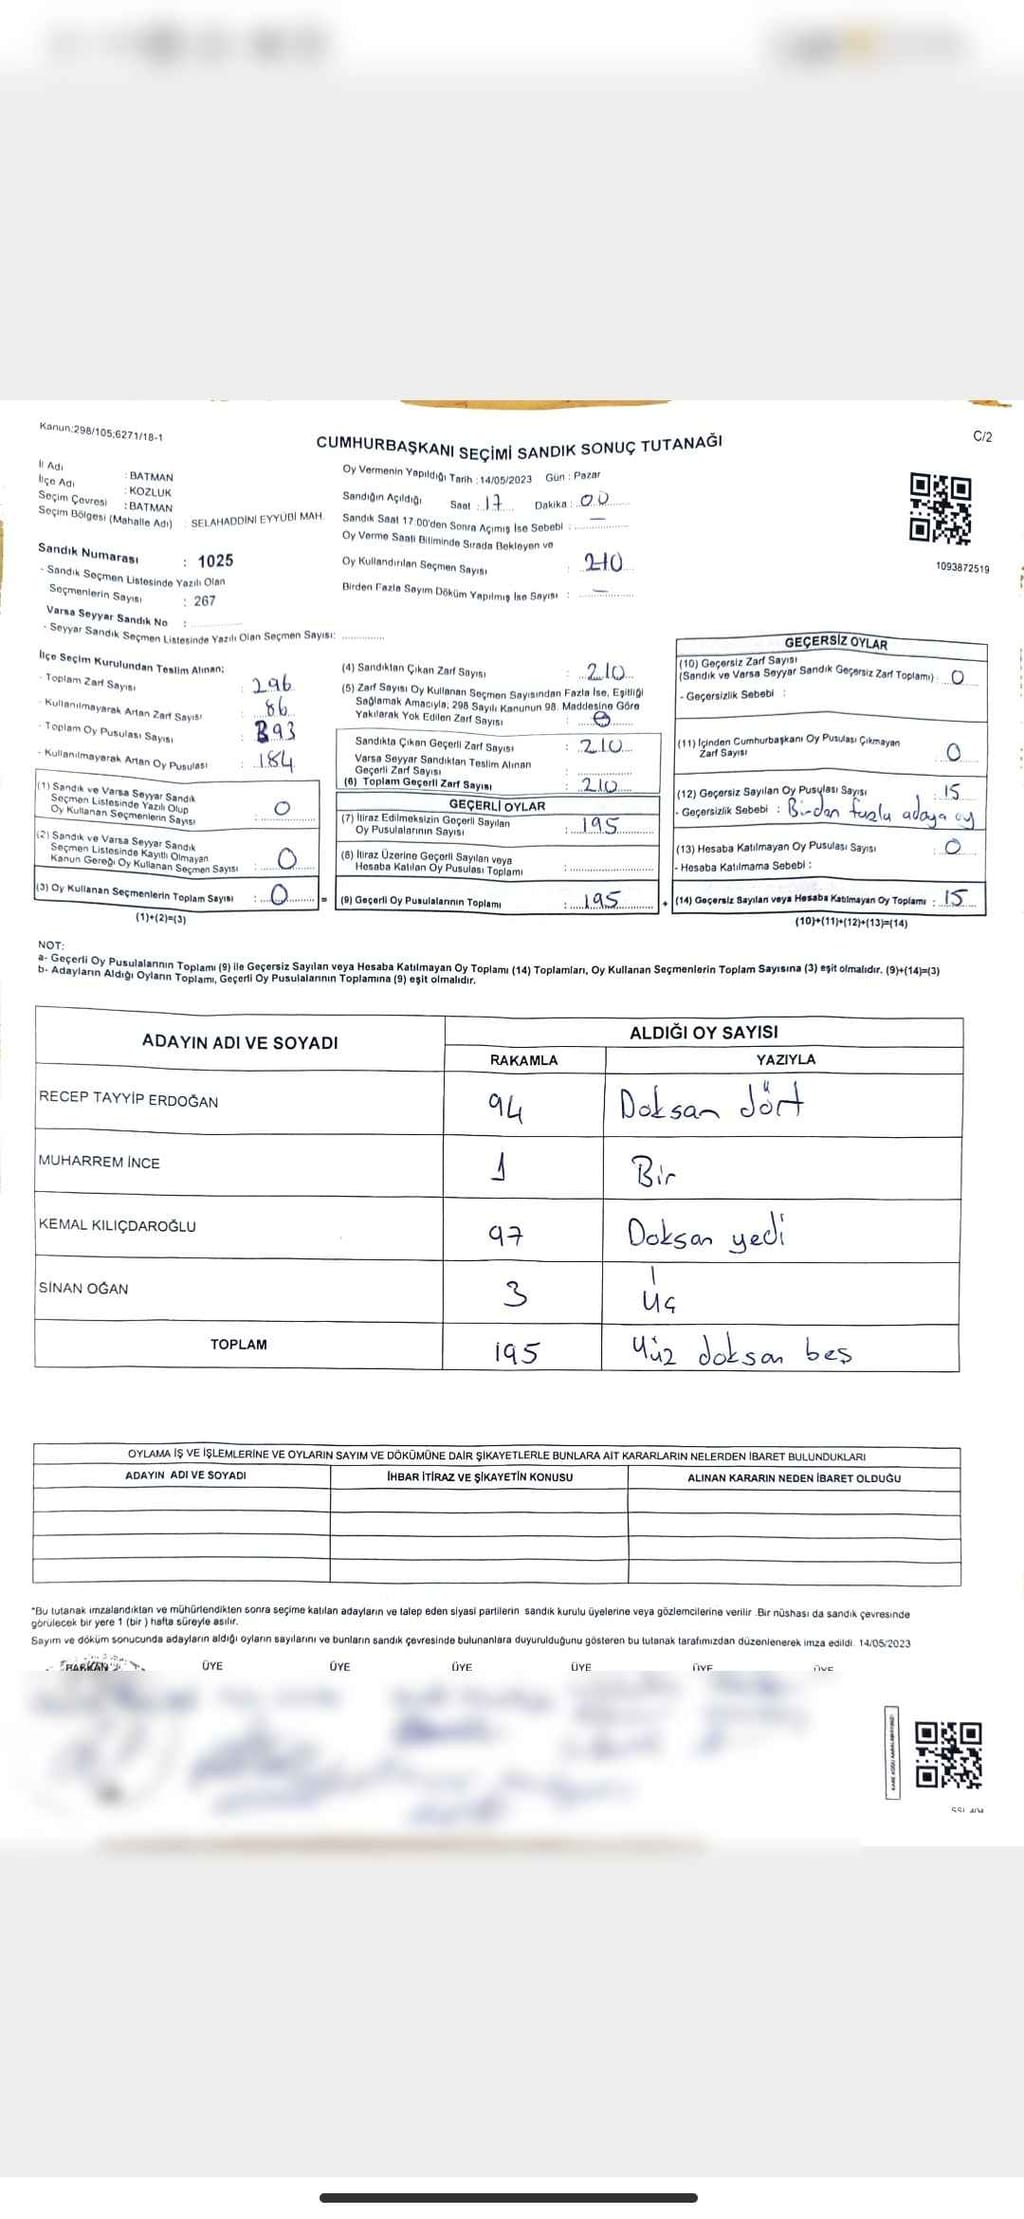 Kanun:298/105;6271/18-1
CUMHURBAŞKANI SEÇİMİ SANDIK SONUÇ TUTANAĞI
C/2
İl Adı : BATMAN
İlçe Adı : KOZLUK
Seçim Çevresi : BATMAN
Seçim Bölgesi (Mahalle Adı) : SELAHADDİNİ EYYUBİ MAH.
Sandık Numarası : 1025
- Sandık Seçmen Listesinde Yazılı Olan
Seçmenlerin Sayısı : 267
Varsa Seyyar Sandık No :
- Seyyar Sandık Seçmen Listesinde Yazılı Olan Seçmen Sayısı:
Oy Vermenin Yapıldığı Tarih : 14/05/2023 Gün : Pazar
Sandığın Açıldığı Saat : 17 Dakika : 00
Sandık Saat 17:00'den Sonra Açımış İse Sebebi : —
Oy Verme Saati Bitiminde Sırada Bekleyen ve
Oy Kullandırılan Seçmen Sayısı : 210
Birden Fazla Sayım Döküm Yapılmış İse Sayısı : —
1093872519
İlçe Seçim Kurulundan Teslim Alınan;
- Toplam Zarf Sayısı : 296
- Kullanılmayarak Artan Zarf Sayısı : 86
- Toplam Oy Pusulası Sayısı : 393
- Kullanılmayarak Artan Oy Pusulası : 184
(1) Sandık ve Varsa Seyyar Sandık
Seçmen Listesinde Yazılı Olup
Oy Kullanan Seçmenlerin Sayısı : 0
(2) Sandık ve Varsa Seyyar Sandık
Seçmen Listesinde Kayıtlı Olmayan
Kanun Gereği Oy Kullanan Seçmen Sayısı : 0
(3) Oy Kullanan Seçmenlerin Toplam Sayısı : 0 =
(1)+(2)=(3)
(4) Sandıktan Çıkan Zarf Sayısı : 210
(5) Zarf Sayısı Oy Kullanan Seçmen Sayısından Fazla İse, Eşitliği
Sağlamak Amacıyla, 298 Sayılı Kanunun 98. Maddesine Göre
Yakılarak Yok Edilen Zarf Sayısı : 0
Sandıkta Çıkan Geçerli Zarf Sayısı : 210
Varsa Seyyar Sandıktan Teslim Alınan
Geçerli Zarf Sayısı :
(6) Toplam Geçerli Zarf Sayısı : 210
GEÇERLİ OYLAR
(7) İtiraz Edilmeksizin Geçerli Sayılan
Oy Pusulalarının Sayısı : 195
(8) İtiraz Üzerine Geçerli Sayılan veya
Hesaba Katılan Oy Pusulası Toplamı :
(9) Geçerli Oy Pusulalarının Toplamı : 195 +
GEÇERSİZ OYLAR
(10) Geçersiz Zarf Sayısı
(Sandık ve Varsa Seyyar Sandık Geçersiz Zarf Toplamı) : 0
- Geçersizlik Sebebi :
(11) İçinden Cumhurbaşkanı Oy Pusulası Çıkmayan
Zarf Sayısı 0
(12) Geçersiz Sayılan Oy Pusulası Sayısı : 15
- Geçersizlik Sebebi : Birden fazla adaya oy
(13) Hesaba Katılmayan Oy Pusulası Sayısı : 0
- Hesaba Katılmama Sebebi :
(14) Geçersiz Sayılan veya Hesaba Katılmayan Oy Toplamı : 15
(10)+(11)+(12)+(13)=(14)
NOT:
a- Geçerli Oy Pusulalarının Toplamı (9) ile Geçersiz Sayılan veya Hesaba Katılmayan Oy Toplamı (14) Toplamları, Oy Kullanan Seçmenlerin Toplam Sayısına (3) eşit olmalıdır. (9)+(14)=(3)
b- Adayların Aldığı Oyların Toplamı, Geçerli Oy Pusulalarının Toplamına (9) eşit olmalıdır.
ADAYIN ADI VE SOYADI ALDIĞI OY SAYISI
RAKAMLA YAZIYLA
RECEP TAYYİP ERDOĞAN 94 Doksan dört
MUHARREM İNCE 1 Bir
KEMAL KILIÇDAROĞLU 97 Doksan yedi
SİNAN OĞAN 3 Üç
TOPLAM 195 Yüz doksan beş
OYLAMA İŞ VE İŞLEMLERİNE VE OYLARIN SAYIM VE DÖKÜMÜNE DAİR ŞİKAYETLERLE BUNLARA AİT KARARLARIN NELERDEN İBARET BULUNDUKLARI
ADAYIN ADI VE SOYADI İHBAR İTİRAZ VE ŞİKAYETİN KONUSU ALINAN KARARIN NEDEN İBARET OLDUĞU
*Bu tutanak imzalandıktan ve mühürlendikten sonra seçime katılan adayların ve talep eden siyasi partilerin sandık kurulu üyelerine veya gözlemcilerine verilir. Bir nüshası da sandık çevresinde
görülecek bir yere 1 (bir ) hafta süreyle asılır.
Sayım ve döküm sonucunda adayların aldığı oyların sayılarını ve bunların sandık çevresinde bulunanlara duyurulduğunu gösteren bu tutanak tarafımızdan düzenlenerek imza edildi. 14/05/2023
BAŞKAN ÜYE ÜYE ÜYE ÜYE ÜYE ÜYE